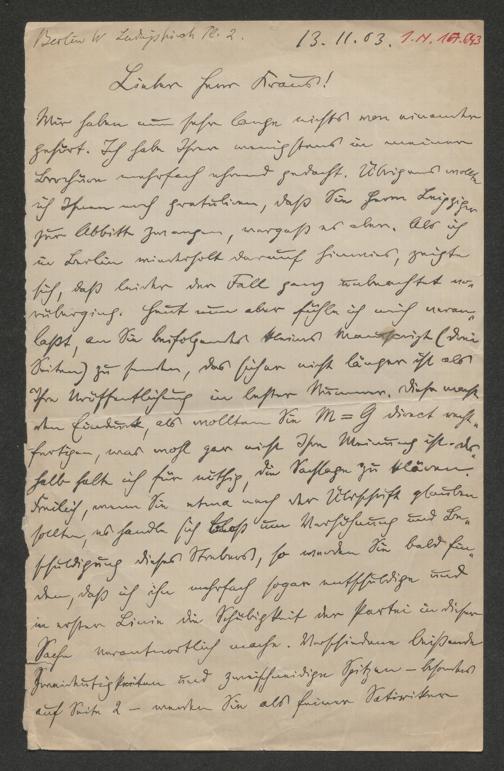 Berlin W Ludwigkirch Pl. 2.
13.11.03. I.N. 167.643
Lieber Herr Kraus!
Wir haben nun sehr lange nichts von einander
gehört. Ich habe Ihrer wenigstens in meiner
Brochüre mehrfach ehrend gedacht. Übrigens wollte
ich Ihnen noch gratulieren, daß Sie Herrn Leipziger
zur Abbitte zwangen, vergaß es aber. Als ich
in Berlin wiederholt darauf hinwies, zeigte
sich, daß leider der Fall ganz unbeachtet vo-
rüberging. Heut nun aber fühle ich mich veran-
laßt, an Sie beifolgendes kleines Manuscript (drei
Seiten) zu senden, das sicher nicht länger ist als
Ihre Veröffentlichung in letzter Nummer. Diese macht
den Eindruck, als wollten Sie M = G direct recht-
fertigen, was wohl gar nicht Ihre Meinung ist. Des-
halb halte ich für nöthig, die Sachlage zu klären.
Freilich, wenn Sie etwa nach der Überschrift glauben
sollten, es handle sich bloß um Verhöhnung und Be-
schuldigung dieses Strebers, so werden Sie bald fin-
den, daß ich ihn mehrfach sogar entschuldige und
in erster Linie die Schäbigkeit der Partei in dieser
Sache verantwortlich mache. Verschiedene beißende
Zweideutigkeiten und zweischneidige Spitzen – besonders
auf Seite 2 – werden Sie als feiner Satiriker